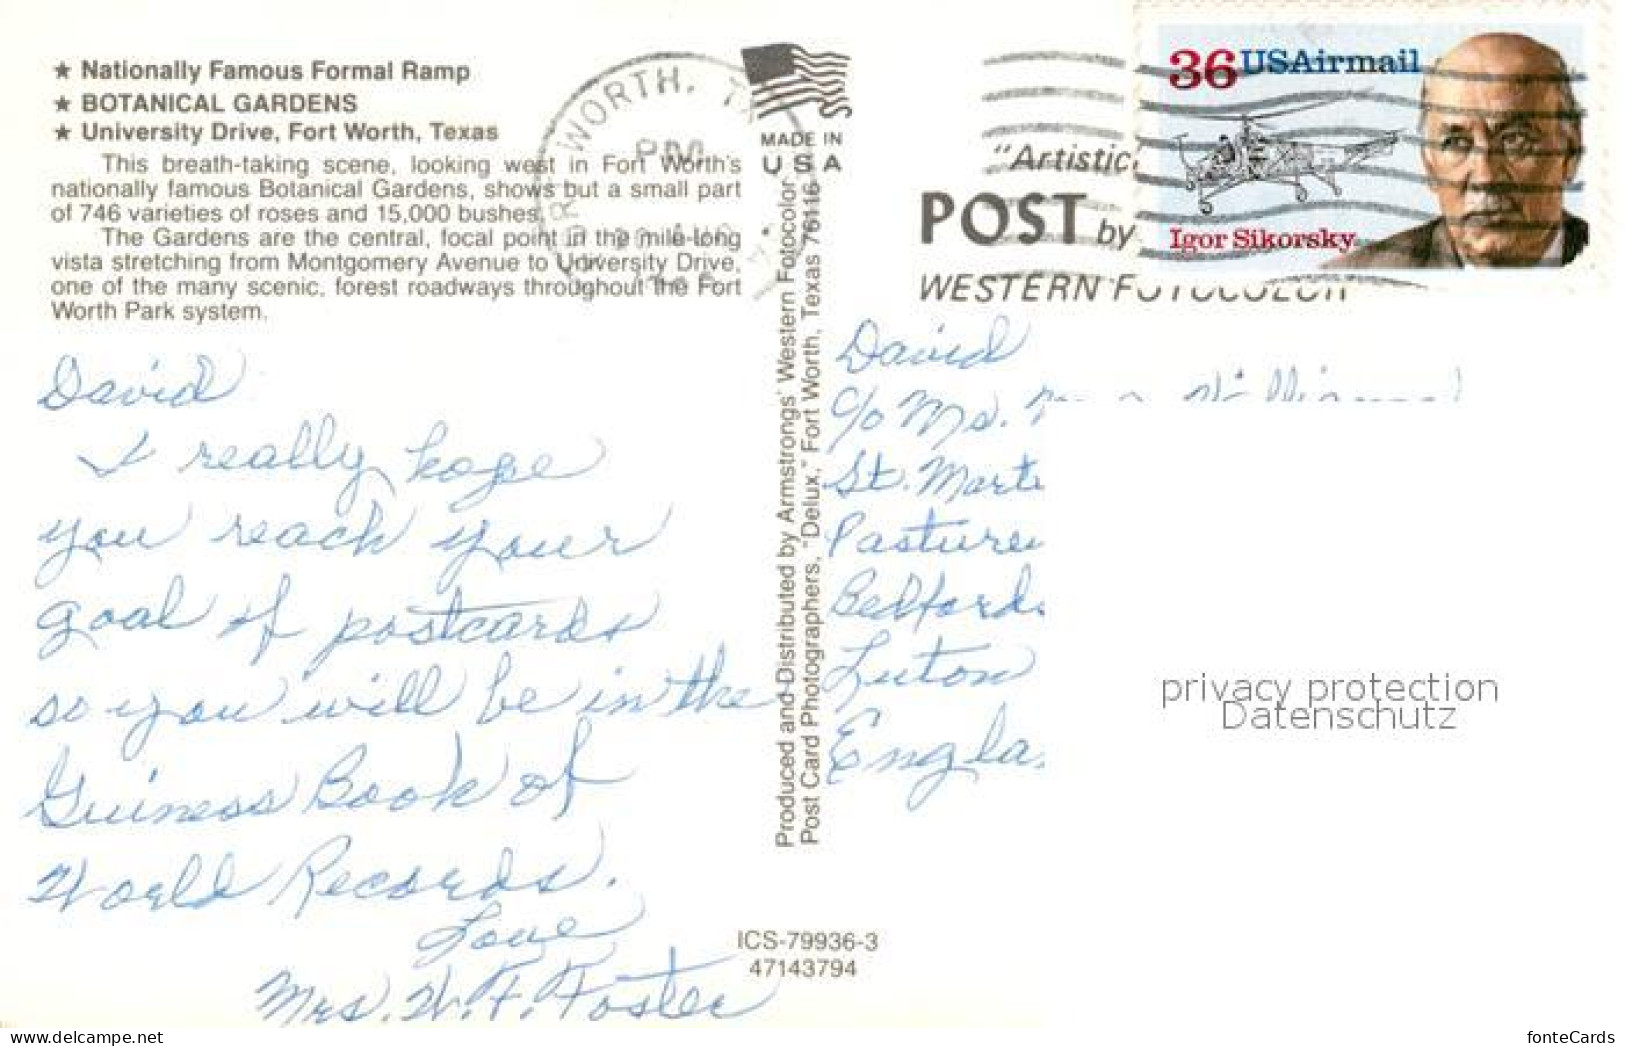 ★ Nationally Famous Formal Ramp
★ BOTANICAL GARDENS
★ University Drive, Fort Worth, Texas
This breath-taking scene, looking west in Fort Worth's
nationally famous Botanical Gardens, shows but a small part
of 746 varieties of roses and 15,000 bushes.
The Gardens are the central, focal point in the mile-long
vista stretching from Montgomery Avenue to University Drive,
one of the many scenic, forest roadways throughout the Fort
Worth Park system.
David
I really hope
you reach your
goal of postcards
so you will be in the
Guiness Book of
World Records.
Love
Mrs. W. F. Foster
WORTH, TX
PM
MADE IN
USA
Produced and Distributed by Armstrongs' Western Fotocolor
Post Card Photographers, "Delux," Fort Worth, Texas 76116
ICS-79936-3
47143794
"Artistic
POST by
WESTERN FOTOCOLOR
36 USAirmail
Igor Sikorsky
David
c/o Ms.
St. Marti
Pasture
Bedfords
Luton
Engla
privacy protection
Datenschutz
https://www.ansichtskarten-center.de/
fonteCards